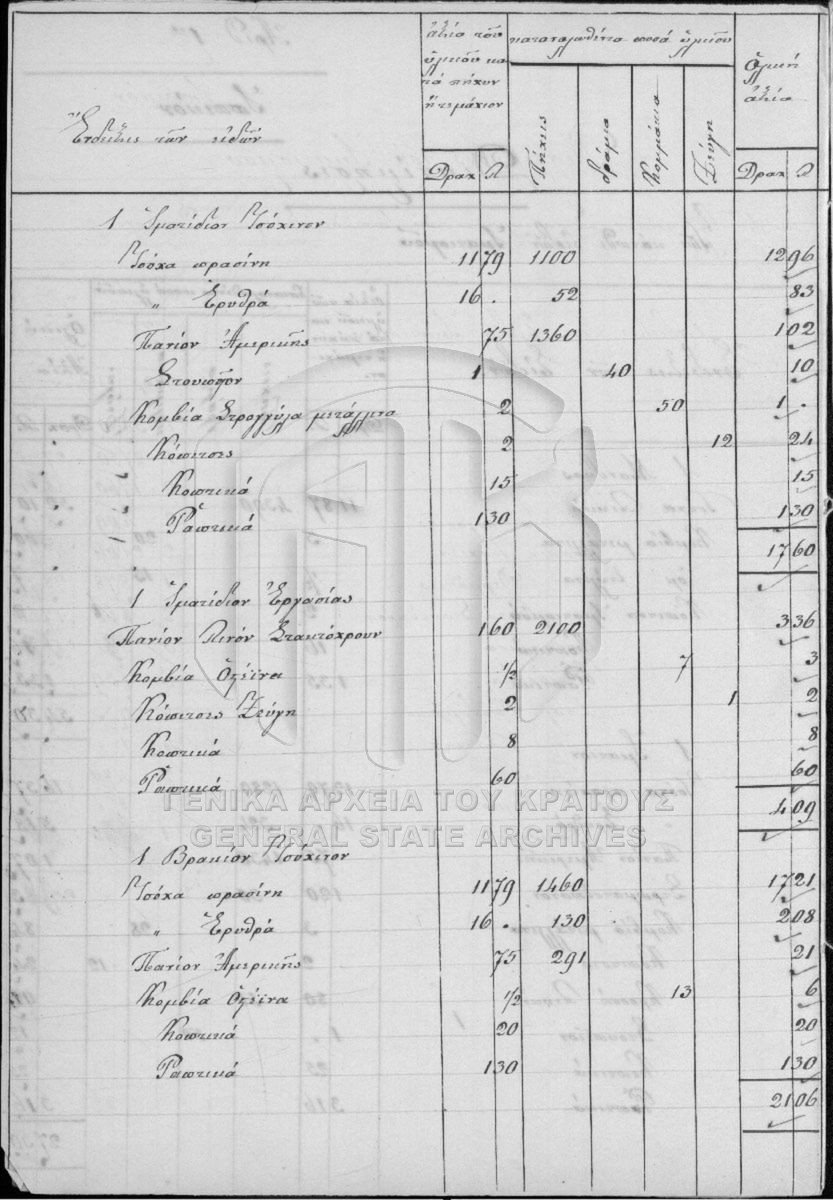 Ἔνδειξις τῶν εἰδῶν
ἀξία τοῦ
ὑλικοῦ κα
τά πῆχυν
ἤ τεμάχιον
Δραχ Λ
καταναλωθέντα ποσά ὑλικοῦ
Πήχεις
Δράμια
Κομμάτια
Ζεύγη
Ὁλική
ἀξία
Δραχ Λ
1 Ἱματίδιον Τσόχινον
Τσόχα πρασίνη 11 79 1100 12 96
" Ἐρυθρά 16 . 52 83
Πανίον Ἀμερικῆς 75 1360 1 02
Στουπῶτον 1 40 10
Κομβία Στρογγύλα μετάλλινα 2 50 1 .
Κόπιτσες 2 12 24
Κοπτικά 15 15
Ῥαπτικά 1 30 1 30
17 60
1 Ἱματίδιον Ἐργασίας
Πανίον Λινόν Στακτόχρουν 1 60 2100 3 36
Κομβία Ὀστέϊνα 1/2 7 3
Κόπιτσες Ζεύγη 2 1 2
Κοπτικά 8 8
Ῥαπτικά 60 60
4 09
1 Βρακίον Τσόχινον
Τσόχα πρασίνη 11 79 1460 17 21
" Ἐρυθρά 16 . 130 2 08
Πανίον Ἀμερικῆς 75 291 21
Κομβία Ὀστέϊνα 1/2 13 6
Κοπτικά 20 20
Ῥαπτικά 1 30 1 30
21 06
ΓΕΝΙΚΑ ΑΡΧΕΙΑ ΤΟΥ ΚΡΑΤΟΥΣ
GENERAL STATE ARCHIVES